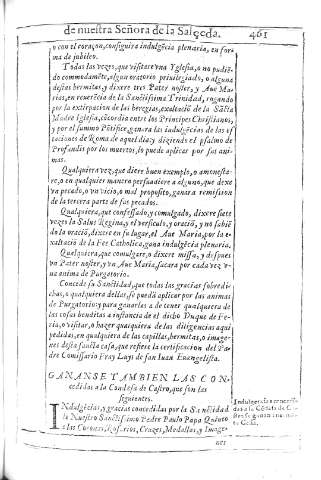 de nuestra Señora de la Salceda. 461
o con el coraçon, consiguira indulgẽcia plenaria, en for-
ma de jubileo.
Todas las vezes, que visitare vna Yglesia, o no pudiẽ-
do commodamẽte, algun oratorio priuilegiado, o alguna
destas hermitas, y dixere tres Pater noster, y Aue Ma-
rias, en reuerẽcia de la Sanctissima Trinidad, rogando
por la extirpacion de las heregias, exaltaciõ de la Sãcta
Madre Iglesia, cõcordia entre los Principes Christianos,
y por el summo Põtifice, ganara las indulgẽcias de las es
taciones de Roma de aquel dia: y diziendo el psalmo de
Profundis por los muertos, lo puede aplicar por sus ani-
mas.
Qualquiera vez, que diere buen exemplo, o amonesta-
re, o en qualquier manera persuadiere a alguno, que dexe
vn pecado, o vn vicio, o mal proposito, ganara remission
de la tercera parte de sus pecados.
Qualquiera, que confessado, y comulgado, dixere siete
vezes la Salue Regina, y el versiculo, y oraciõ, y no sabiẽ
do la oraciõ, dixere en su lugar, el Aue Maria, por la e-
xaltacion de la Fee Catholica, gana indulgẽcia plenaria.
Qualquiera, que comulgare, o dixere missa, y despues
vn Pater noster, y vn Aue Maria, sacara por cada vez v-
na anima de Purgatorio.
Concede su Sanctidad, que todas las gracias sobredi-
chas, o qualquiera dellas, se puedã aplicar por las animas
de Purgatorio: y para ganarlas a de tener qualquiera de
las cosas benditas a instancia de el dicho Duque de Fe-
ria, o visitar, o hazer qualquiera de las diligencias aqui
pedidas, en qualquiera de las capillas, hermitas, o image-
nes desta sancta casa, que refiere la certificacion del Pa-
dre Comissario Fray Luys de san Iuan Euangelista.
GANANSE TAMBIEN LAS CON-
cedidas a la Condesa de Castro, que son las
siguientes.
INdulgẽcias, y gracias concedidas por la Sanctidad
de Nuestro Sanctissimo Padre Paulo Papa Quinto
a las Coronas, Rosarios, Cruzes, Medallas, y Image-
Indulgencias concedi-
das a la Cõdesa de Ca-
stro se ganan en